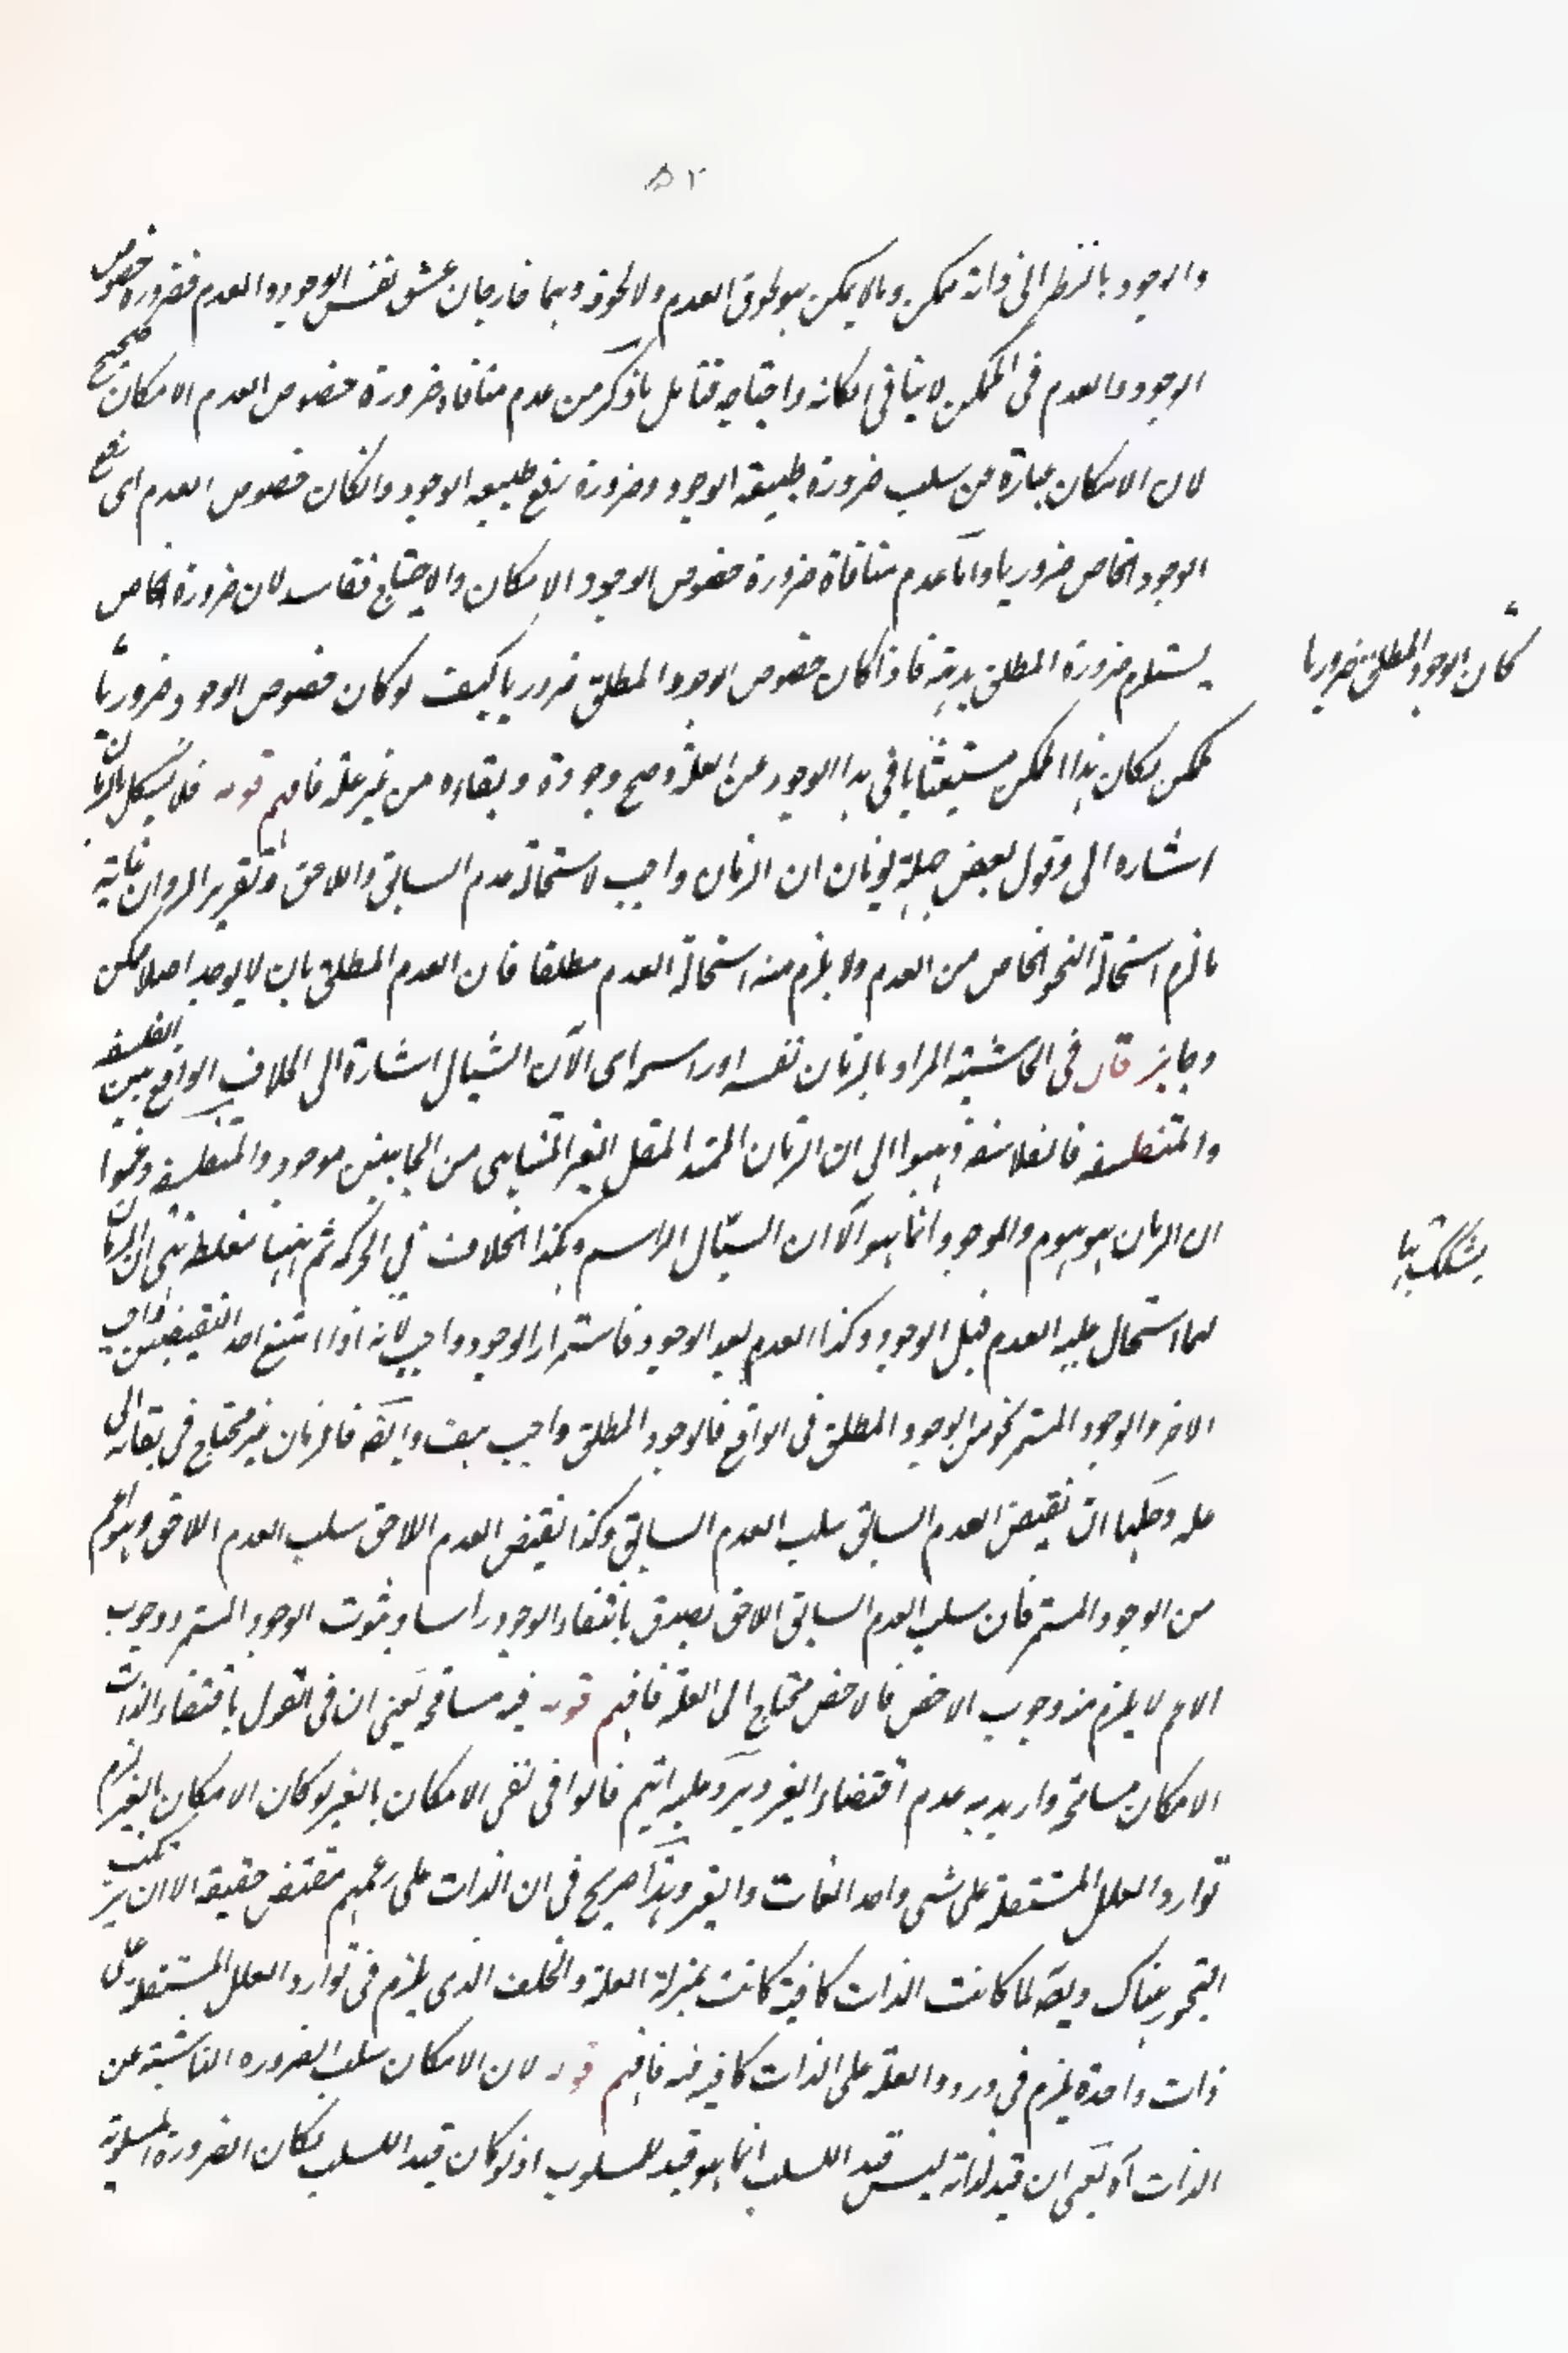 ٥٢
والوجود بالنظر الى ذاته ممكن وما لا يمكن هو لحوق العدم ولا لحوقه وهما خارجان عن نفس الوجود والعدم فضرورة خصوص
الوجود والعدم فى الممكن لا ينافى امكانه واحتياجه فتامل ما ذكر من عدم منافاة ضرورة خصوص العدم الامكان صحيح
لان الامكان عبارة عن سلب ضرورة طبيعة الوجود وضرورة رفع طبيعه الوجود وان كان خصوص العدم اى رفع
الوجود الخاص ضروريا واما عدم منافاة ضرورة خصوص الوجود الامكان والاحتياج ففاسد لان ضرورة الخاص
يستلزم ضرورة المطلق بديهة فاذا كان خصوص الوجود المطلق ضروريا كيف لو كان خصوص الوجود ضروريا
كان الوجود المطلق ضروريا
لممكن لكان هذا الممكن مستغنيا فى هذا الوجود عن العلة وصح وجوده وبقاءه من غير علة فافهم قوله فلا يشكل بالزمان
اشاره الى وقول بعض جهلة يونان ان الزمان واجب لاستحالة عدم السابق واللاحق وتقرير الرد ان غاية
ما لزم استحالة النحو الخاص من العدم ولا يلزم منه استحالة العدم مطلقا فان العدم المطلق بان لا يوجد اصلا ممكن
وجايز قال فى الحاشية المراد بالزمان نفسه او راسمه اى الآن السيال اشارة الى الخلاف الواقع بين الفلسفة
والمتفلسفه فالفلاسفة ذهبوا الى ان الزمان الممتد المتصل الغير المتناهى من الجانبين موجود والمتفلسفه زعموا
ان الزمان هو موهوم والموجود انما هو الآن السيّال الراسم وهكذا الخلاف فى الحركه ثم ههنا مغلطة هى ان الزمان
يتشكك بها
لما استحال عليه العدم قبل الوجود وكذا العدم بعد الوجود فاستمرار الوجود واجب لانه اذا امتنع احد النقيضين وجب
الاخر والوجود المستمر نحو من الوجود المطلق فى الواقع فالوجود المطلق واجب هف وايضا فالزمان غير محتاج فى بقائه الى
عله وحلها ان نقيض العدم السابق سلب العدم السابق وكذا نقيض العدم اللاحق سلب العدم اللاحق وهو اعم
من الوجود المستمر فان سلب العدم السابق اللاحق يصدق بانتفاء الوجود راسا وثبوت الوجود المستمر ووجوب
الاعم لا يلزم منه وجوب الاخص فالاخص محتاج الى العلة فافهم قوله فيه مسامحة يعنى ان فى القول باقتضاء الذات
الامكان مسامحة واريد به عدم اقتضاء الغير ويرد عليه انهم قالوا فى نفى الامكان بالغير لو كان الامكان بالغير لزم
توارد العلل المستقلة على شى واحد الذات والغير وهذا صريح فى ان الذات على زعمهم مقتض حقيقة الا ان يرتكب
التجوز هناك ويقال لما كانت الذات كافية كانت بمنزلة العلة والخلف الذى يلزم فى توارد العلل المستقلة على
ذات واحدة يلزم فى ورود العلة على الذات كافيه فيه فافهم قوله لان الامكان سلب الضروره الناشية عن
الذات آه يعنى ان قيد لذاته ليس قيد السلب انما هو قيد للمسلوب اذ لو كان قيد السلب لكان الضرورة المسلوبة